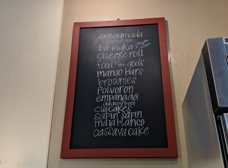 ensaymada
cheese roll
food for the gods
mango bars
brownies
polvoron
empanada
cupcakes
sapin sapin
maja blanco
cassava cake